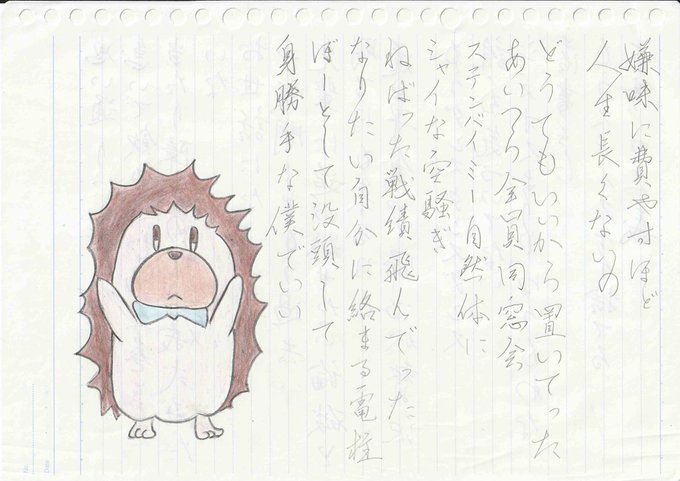 嫌味に費やすほど
人生長くないの
どうでもいいから置いてった
あいつら全員同窓会
ステンバイミー自然体に
シャイな空騒ぎ
ねばった戦績飛んでった
なりたい自分に絡まる電柱
ぼーとして没頭して
身勝手な僕でいい
No.
Date